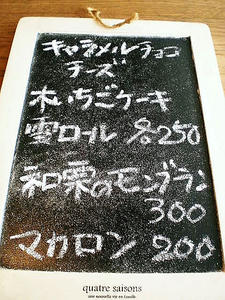 キャラメルチョコ
チーズ
木いちごケーキ
雪ロール 250
和栗のモンブラン
300
マカロン 200
quatre saisons
une nouvelle vie en famille